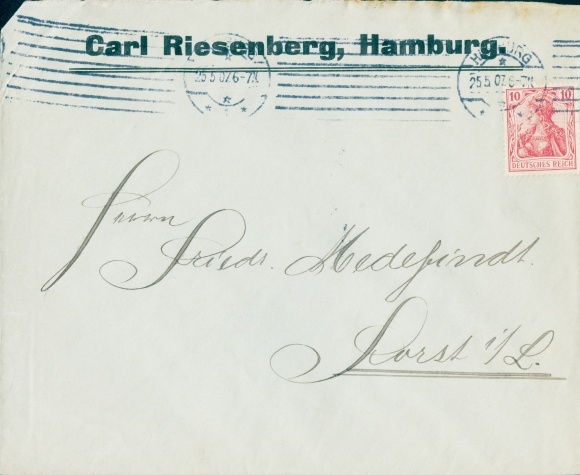 Carl Riesenberg, Hamburg.
25.5.07.6-7N.
HAMBURG
25.5.07.6-7N.
10 10
DEUTSCHES REICH
Herrn
Friedr. Medefindt.
Forst i/L.